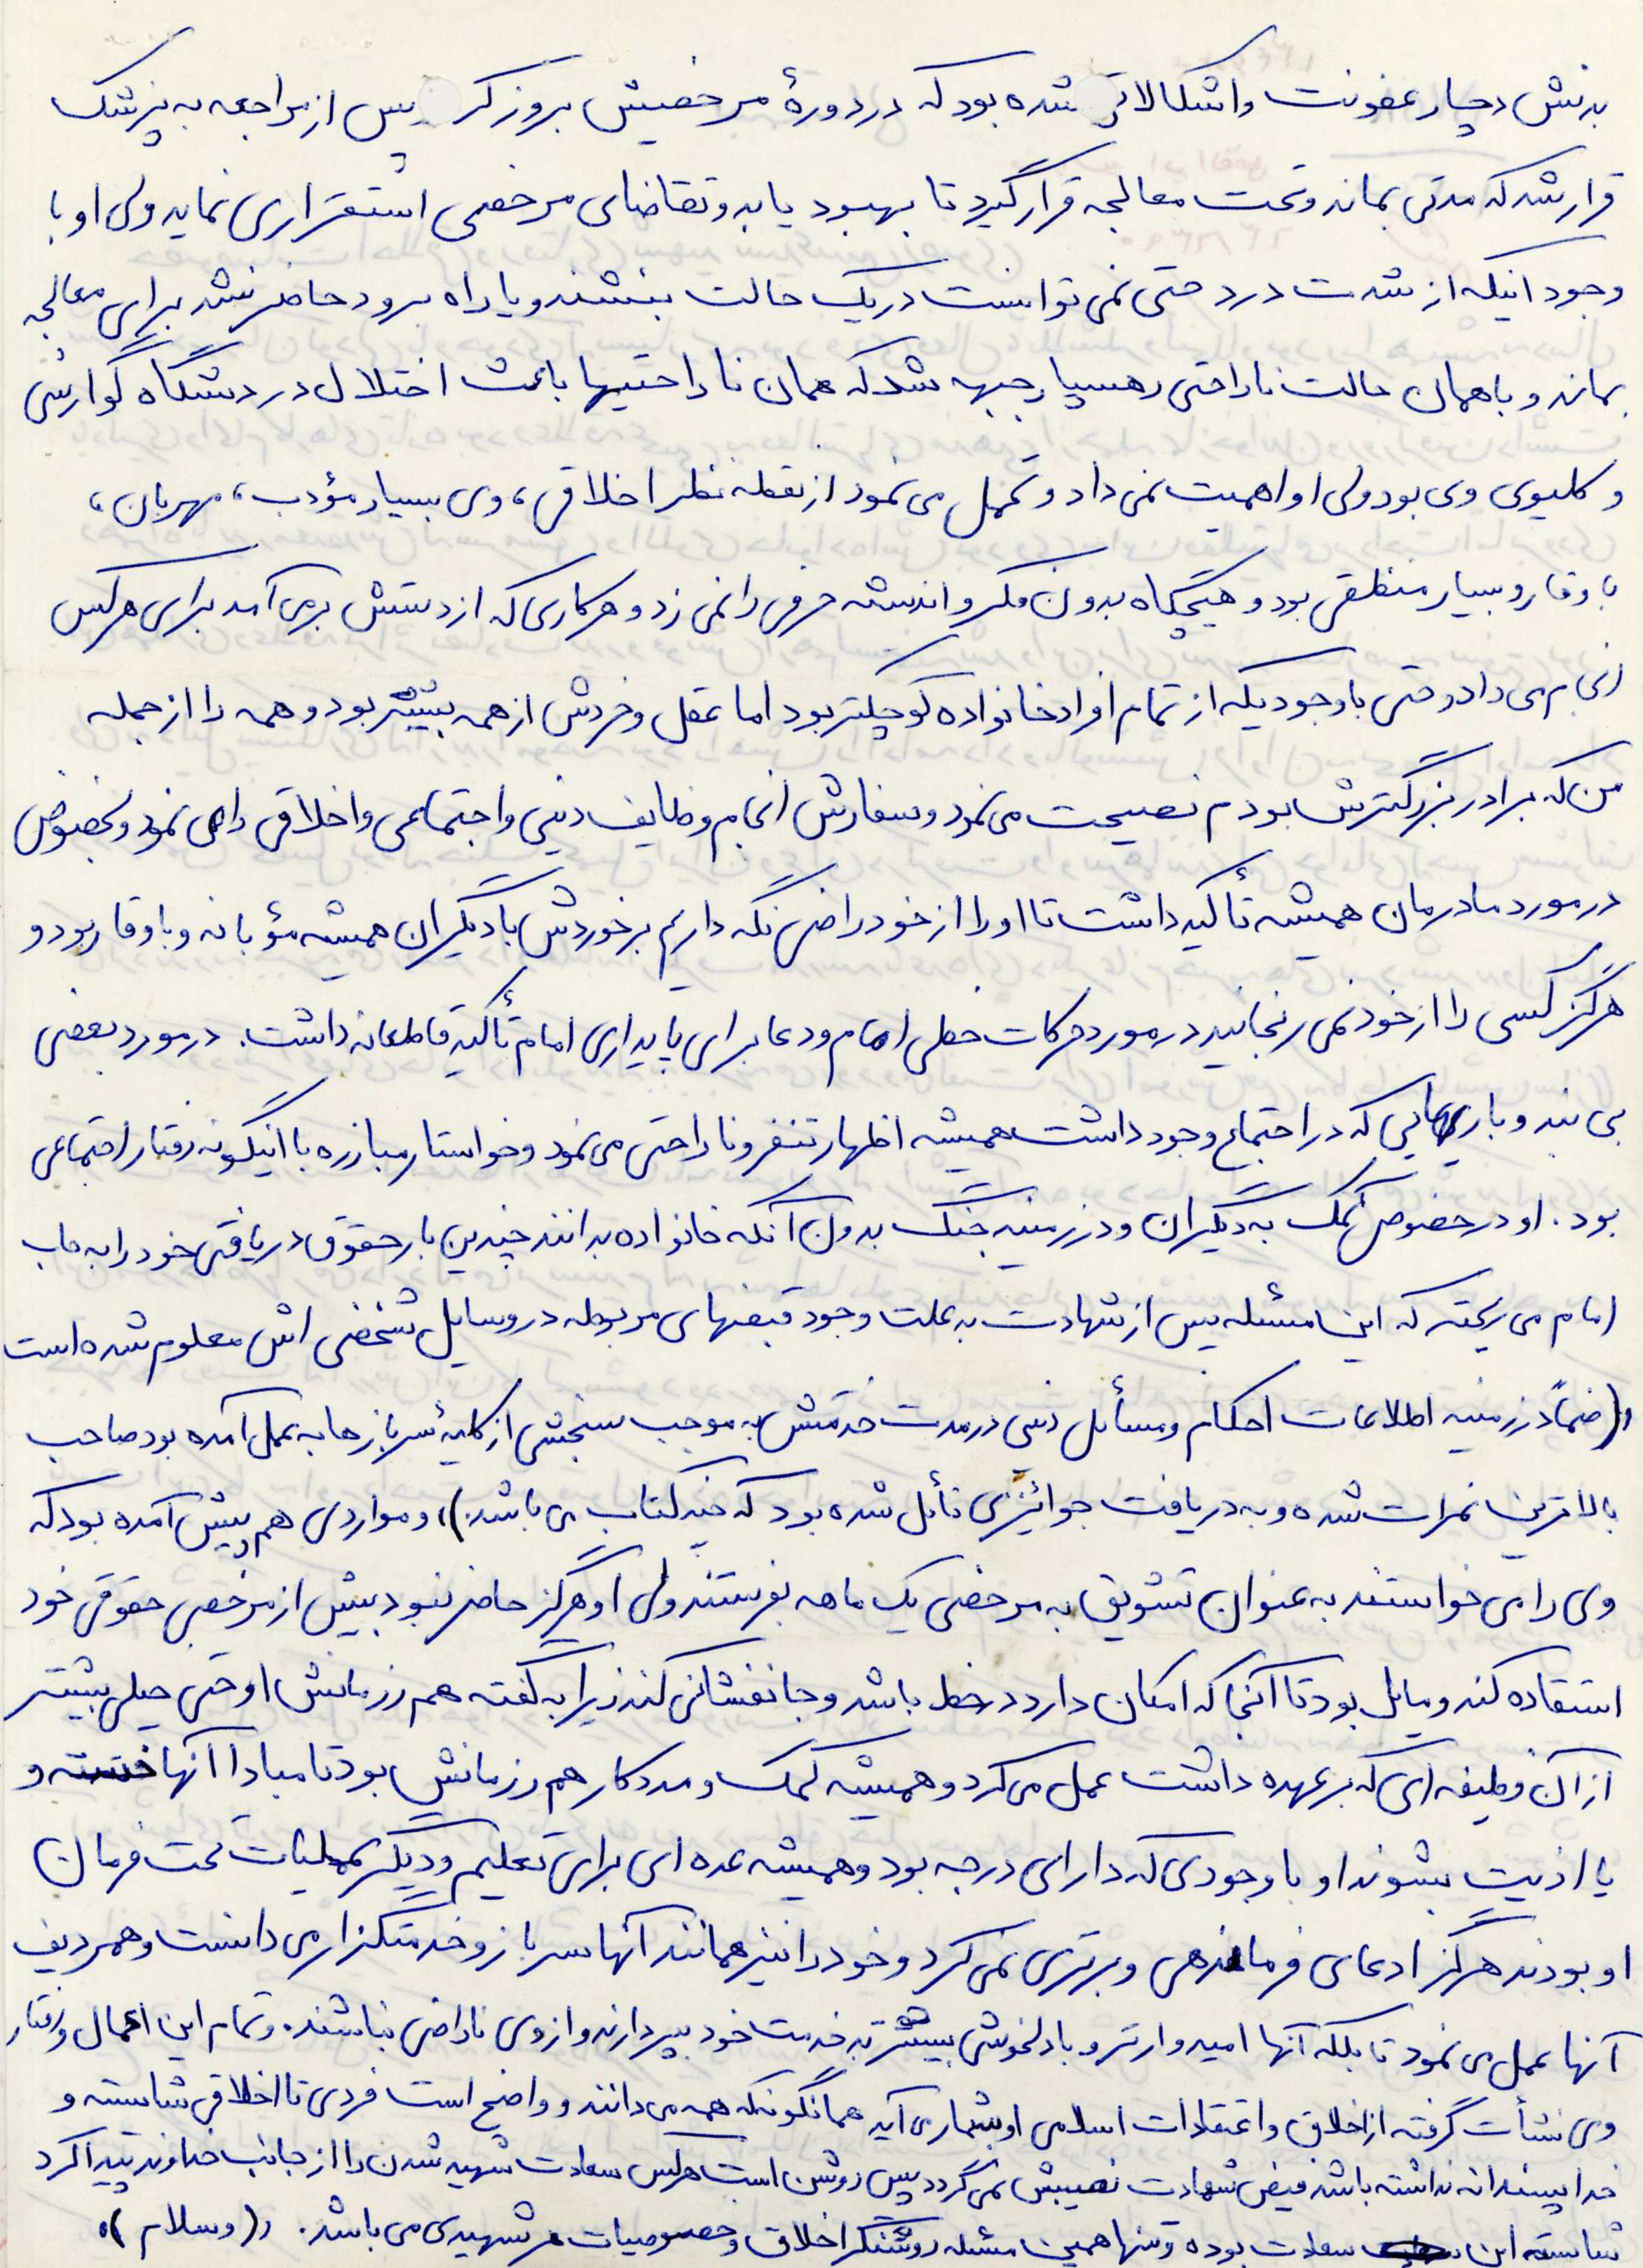 بدنش دچار عفونت و اشکالاتی شده بود که در دورهٔ مرخصیش بروز کر پس از مراجعه به پزشک
قرار شد که مدتی بماند و تحت معالجه قرار گیرد تا بهبود یابد و تقاضای مرخصی استقراری نماید ولی او با
وجود اینکه از شدت درد حتی نمی توانست در یک حالت بنشند و یا راه برود حاضر نشد برای معالجه
بماند و با همان حالت ناراحتی رهسپار جبهه شد که همان ناراحتیها باعث اختلال در دستگاه گوارشی
و کلیوی وی بود ولی او اهمیت نمی داد و تحمل می نمود از نقطه نظر اخلاقی، وی بسیار مؤدب، مهربان،
با وقار و بسیار منطقی بود و هیچگاه بدون فکر و اندیشه حرفی را نمی زد و هر کاری که از دستش برمی آمد برای هر کس
انجام می داد و حتی با وجودیکه از تمام افراد خانواده کوچکتر بود اما عقل و خردش از همه بیشتر بود و همه را از جمله
من که برادر بزرگترش بودم نصیحت می نمود و سفارش انجام وظایف دینی و اجتماعی و اخلاقی را می نمود و بخصوص
در مورد مادرمان همیشه تأکید داشت تا او را از خود راضی نگه داریم برخوردش با دیگران همیشه مؤبانه و با وقار بود و
هرگز کسی را از خود نمی رنجانید در مورد حرکات خطی امام و دعا برای پایداری امام تأکید قاطعانه داشت. در مورد بعضی
بی بند و باریهایی که در اجتماع وجود داشت همیشه اظهار تنفر و ناراحتی می نمود و خواستار مبازره با اینگونه رفتار اجتماعی
بود. او در خصوص کمک به دیگران و در زمینه جنگ بدون آنکه خانواده بدانند چندین بار حقوق دریافتی خود را به حاب
امام می ریخته که این مسئله پس از شهادت به علت وجود قبضهای مربوطه در وسایل شخصی اش معلوم شده است
و (ضمناً در زمینه اطلاعات احکام و مسائل دینی در مدت خدمتش به موجب سنجشی از کلیهٔ سربازها به عمل آمده بود صاحب
بالاترین نمرات شده و به دریافت جوائیزی نائل شده بود که چند کتاب می باشد.)، و مواردی هم پیش آمده بود که
وی را می خواستند به عنوان تشویق به مرخصی یک ماهه بفرستند ولی او هرگز حاضر نبود بیش از مرخصی حقوقی خود
استفاده کند و مایل بود تا آنجا که امکان دارد در خط باشد و جانفشانی کند زیرا به گفته هم رزمانش او حتی خیلی بیشتر
از آن وظیفه ای که بر عهده داشت عمل می کرد و همیشه کمک و مددکار هم رزمانش بود تا مبادا آنها خسته و
یا اذیت بشوند او با وجودی که دارای درجه بود و همیشه عده ای برای تعلیم و دیگر عملیات تحت فرمان
او بودند هرگز ادعای فرماندهی و برتری نمی کرد و خود را نیز همانند آنها سرباز و خدمتگزار می دانست و همردیف
آنها عمل می نمود تا بلکه آنها امیدوارتر و با دلخوشی بیشتر به خدمت خود بپردازند و از وی ناراضی نباشند. و تمام این اعمال و رفتار
وی نشأت گرفته از اخلاق و اعتقادات اسلامی او بشمار می آید همانگونکه همه می دانند و واضح است فردی تا اخلاقی شایسته و
خدا پسندانه نداشته باشد فیض شهادت نصیبش نمی گردد پس روشن است هر کس سعادت شهید شدن را از جانب خداوند پیدا کرد
شایسته این سعادت بوده و تنها همین مسئله روشنگر اخلاق و خصوصیات هر شهیدی می باشد. ((وسلام))